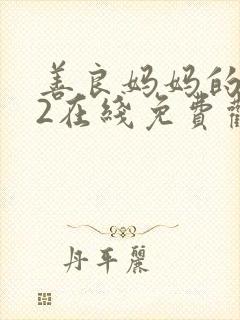 善良妈妈的
2在线免费
丹平麗